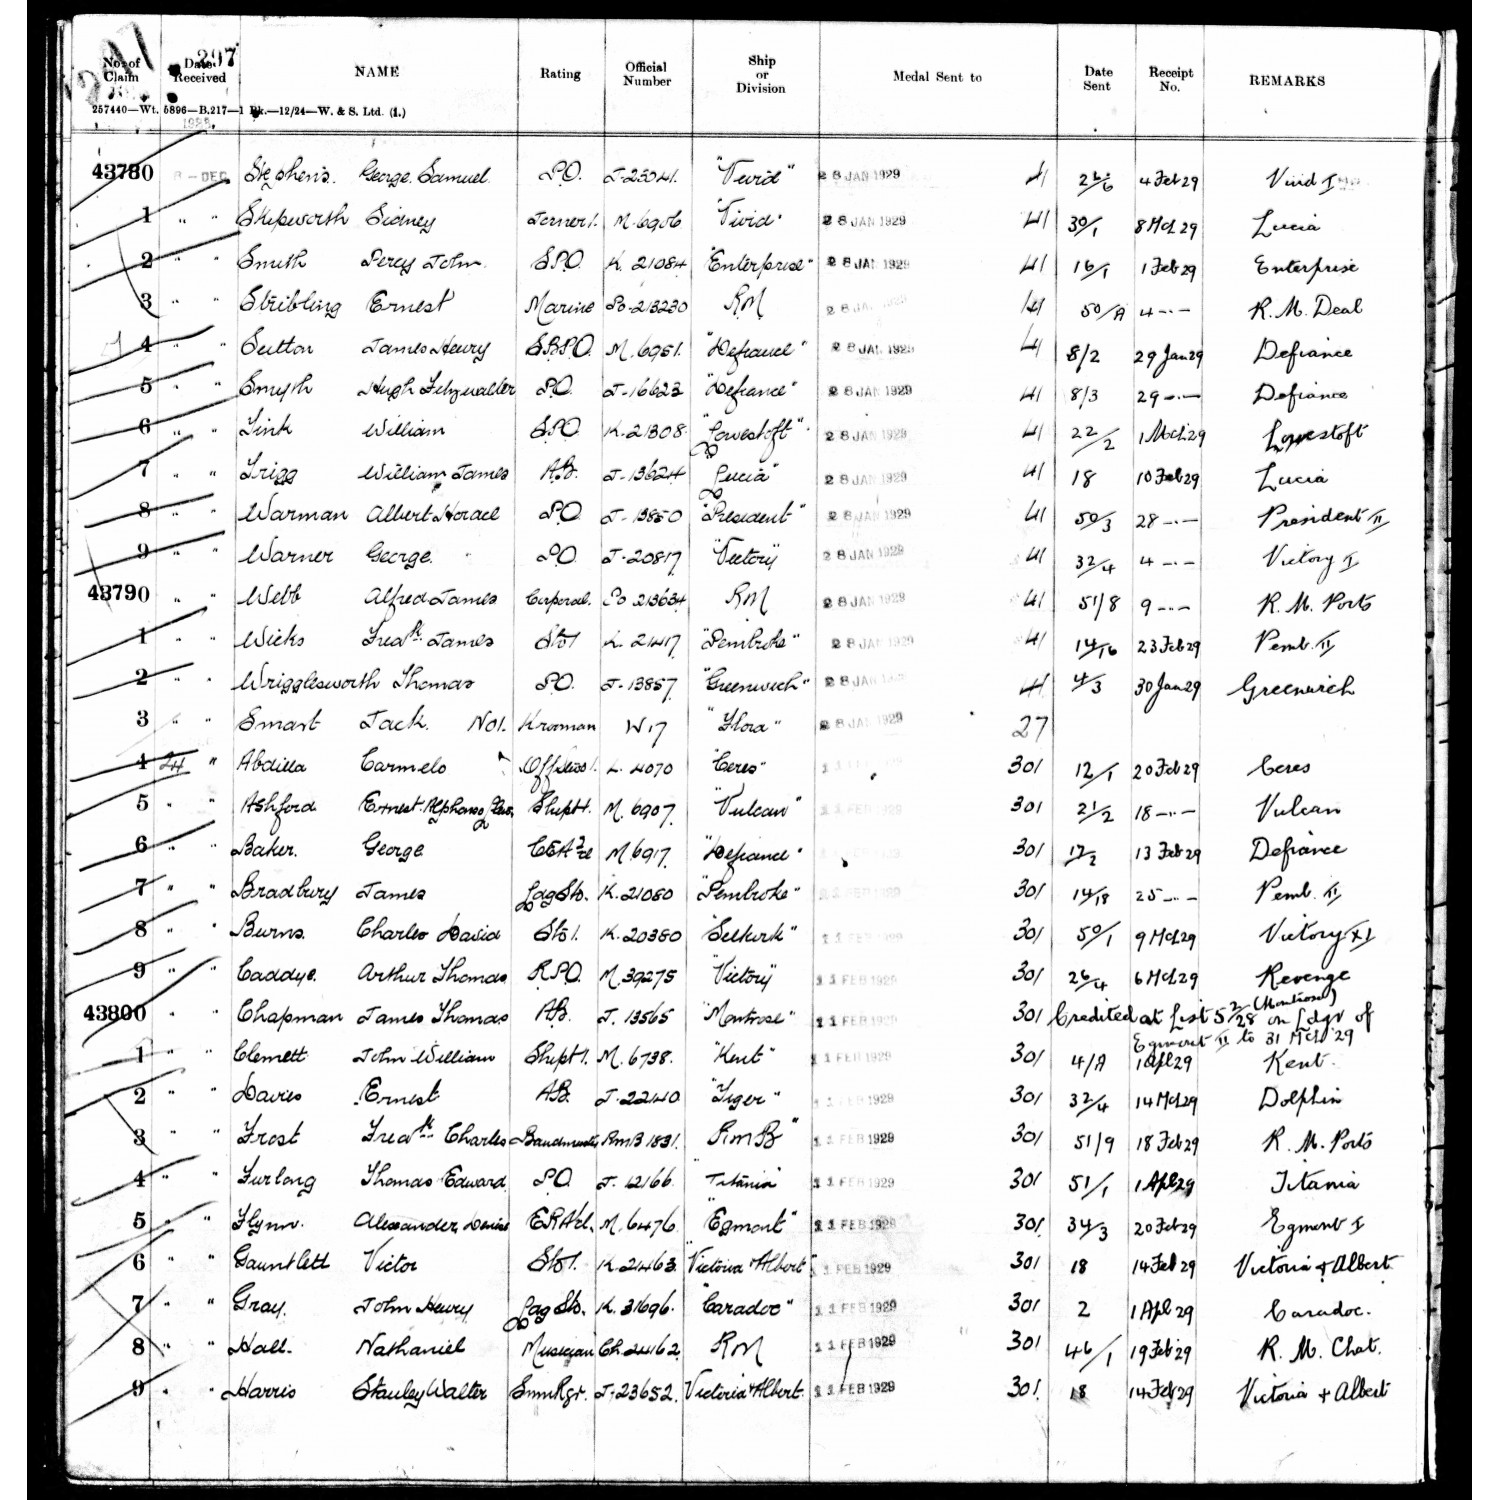 297
No. of Claim Date Received NAME Rating Official Number Ship or Division Medal Sent to Date Sent Receipt No. REMARKS
257440—Wt. 5896—B.217—1 Bk.—12/24—W. & S. Ltd. (1.)
43780 - DEC Stephens. George Samuel P.O. J-25041. "Vivid" 28 JAN 1929 41 26/6 4 Feb 29 Vivid I
1 " " Skepworth Sidney M. 6906 "Vivid" 28 JAN 1929 41 30/1 8 Mch 29 Lucia
2 " " Smith Percy John S.P.O. K. 21084 "Enterprise" 28 JAN 1929 41 16/1 1 Feb 29 Enterprise
3 " " Stribling Ernest Marine Po-213230 RM 28 JAN 1929 41 50/A 4 -"- R. M. Deal
4 " " Sutton James Henry S.B.P.O. M. 6951. "Defiance" 28 JAN 1929 41 8/2 29 Jan 29 Defiance
5 " " Smyth Hugh Fitzwalter P.O. J-16623 "Defiance" 28 JAN 1929 41 8/3 29 -"- Defiance
6 " " Tink William S.P.O. K. 21308 "Lowestoft" 28 JAN 1929 41 22/2 1 Mch 29 Lowestoft
7 " " Trigg William James A.B. J-13624 "Lucia" 28 JAN 1929 41 18 10 Feb 29 Lucia
8 " " Warman Albert Horace P.O. J-13850 "President" 28 JAN 1929 41 50/3 28 -"- President II
9 " " Warner George. P.O. J-20817 "Victory" 28 JAN 1929 41 32/4 4 -"- Victory I
43790 " " Webb Alfred James Corporal. Po 213634 RM 28 JAN 1929 41 51/8 9 -"- R. M. Ports
1 " " Wicks Fredk. James Sto1 K. 21417 "Pembroke" 28 JAN 1929 41 14/16 23 Feb 29 Pemb. II
2 " " Wrigglesworth Thomas P.O. J-13857 "Greenwich" 28 JAN 41 4/3 30 Jan 29 Greenwich
3 " " Smart Jack. No1. Krooman W17 "Flora" 28 JAN 1929 27
4 24 " Abdilla Carmelo L. 4070 "Ceres" 301 12/1 20 Feb 29 Ceres
5 " " Ashford Ernest Alphonso Shipt1. M. 6907. "Vulcan" 11 FEB 1929 301 21/2 18 -"- Vulcan
6 " " Baker. George C.E.A. 2cl M. 6917. "Defiance" 301 17/2 13 Feb 29 Defiance
7 " " Bradbury James Ldg Sto. K. 21080 "Pembroke" 11 FEB 1929 301 14/18 25 -"- Pemb. II
8 " " Burns. Charles David Sto1. K. 20380 "Selkirk" 11 FEB 1929 301 50/1 9 Mch 29 Victory XI
9 " " Caddye. Arthur Thomas R.P.O. M. 39275 "Victory" 11 FEB 1929 301 26/4 6 Mch 29 Revenge
43800 " Chapman James Thomas A.B. J. 13565 "Montrose" 11 FEB 1929 301 Credited at List 5 2/28 (Montrose) on Ldgr of
Egmont II to 31 Mch 29
1 " " Clemett John William Shipt1. M. 6738. "Kent" 11 FEB 1929 301 4/A 1 Apl 29 Kent.
2 " " Davies Ernest A.B. J-22440 "Tiger" 11 FEB 1929 301 32/4 14 Mch 29 Dolphin
3 " " Frost Fredk. Charles Bandmaster RMB 1831. RMB 11 FEB 1929 301 51/9 18 Feb 29 R. M. Ports
4 " " Furlong Thomas Edward P.O. J. 12166. "Titania" 11 FEB 1929 301 51/1 1 Apl 29 Titania
5 " " Flynn. Alexander E.R.A. M. 6476. "Egmont" 11 FEB 1929 301. 34/3 20 Feb 29 Egmont I
6 " " Gauntlett Victor Sto1. K. 21463. "Victoria & Albert" 11 FEB 1929 301 18 14 Feb 29 Victoria & Albert
7 " " Gray. John Henry Ldg Sto. K. 31696. "Caradoc" 11 FEB 1929 301 2 1 Apl 29 Caradoc.
8 " " Hall. Nathaniel Musician Ch. 24162. RM 11 FEB 1929 301 46/1 19 Feb 29 R. M. Chat.
9 " " Harris Stanley Walter J-23652. Victoria & Albert. 11 FEB 1929 301. 18 14 Feb 29 Victoria & Albert